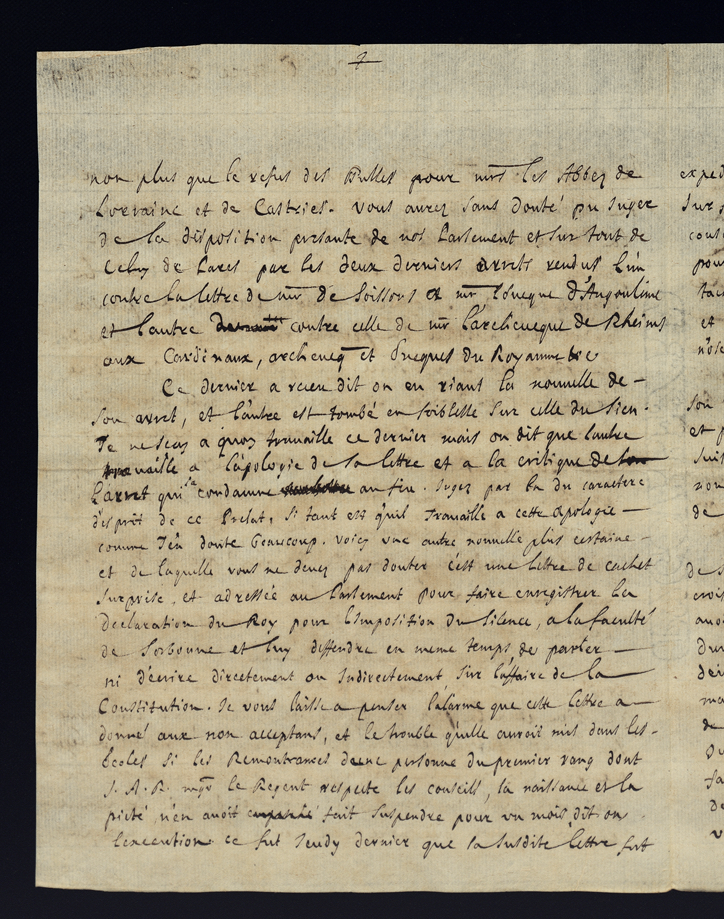 non plus que le refus des Bulles pour mrs les Abbez de
Lorraine et de Castries. Vous aurez sans douté pu Juger
de la disposition presante de nos Parlement et sur tout de
Celuy de Paris par les deux derniers arrets rendus L'un
contre la lettre de mr de Soissons a mr l'Eveque d'Angoulime
et l'autre contre celle de mr l'archeveque de Rheims
aux Cardinaux, archevq et Eveques du Royaume
Ce dernier a receu dit on en riant la nouvelle de
son arret, et l'autre est tombé en foiblesse sur celle du sien.
Je ne scay a quoy travaille ce dernier mais on dit que l'autre
travaille a l'apologie de sa lettre et a la critique de
l'arret qui la condamne au feu. Jugez par la du caractere
d'esprit de ce Prelat, si tant est qu'il Travaille a cette apologie
comme J'en doute beaucoup. voicy une autre nouvelle plus certaine
et de laquelle vous ne devez pas douter c'est une lettre de cachet
surprise, et adressée au Parlement pour faire enregistrer la
declaration du Roy pour l'imposition du silence, a la faculté
de Sorbonne et luy deffendre en meme temps de parler
ni d'ecrire directement ou Indirectement sur l'affaire de la
Constitution. Je vous laisse a penser l'alarme que cette lettre a
donné aux non acceptans, et le trouble qu'elle auroit mis dans les
Ecoles si les Remontrances d'une personne du premier rang dont
S. A. R. mgr le Regent respecte les conseils, la naissance et la
pieté, n'en avoit fait suspendre pour un mois dit on
l'execution ce fut Jeudy dernier que la susdite lettre fut
exped
Sur
cons
pour
tac
et
n'ose
son
et p
suit
nou
de
de s
crois
avo
dun
der
ma
de
fa
de
v